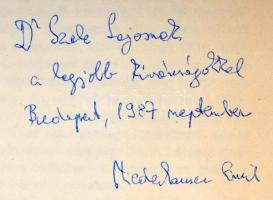 Dr Szele Lajosnak,
a legjobb kívánságokkal
Budapest, 1987 szeptember
Niederhauser Emil